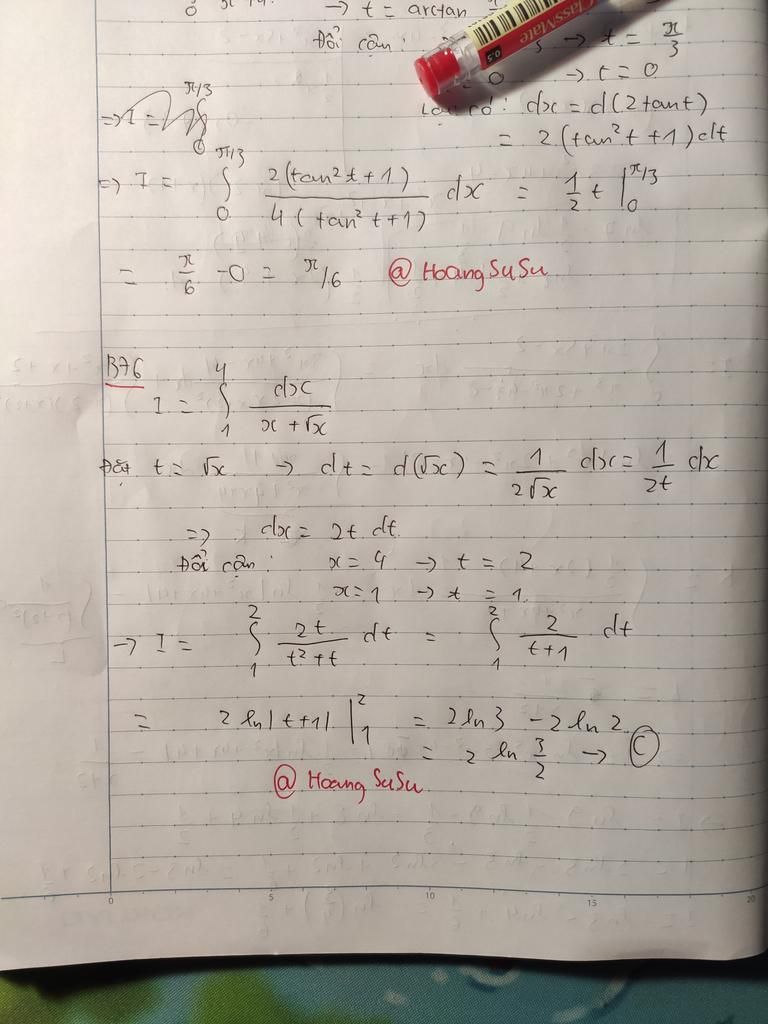 → t = arctan
Đổi cận: → t = π/3
0 → t = 0
=> I = ∫₀^{π/3}
có: dx = d(2tant)
= 2(tan²t + 1)dt
=> I = ∫₀^{π/3} 2(tan²t + 1) / 4(tan²t + 1) dx = 1/2 t |₀^{π/3}
= π/6 - 0 = π/6 @HoangSuSu
B76
I = ∫₁⁴ dx / (x + √x)
Đặt t = √x → dt = d(√x) = 1/(2√x) dx = 1/(2t) dx
=> dx = 2t. dt.
Đổi cận: x = 4 → t = 2
x = 1 → t = 1.
→ I = ∫₁² 2t/(t² + t) dt = ∫₁² 2/(t + 1) dt
= 2 ln|t + 1| |₁² = 2ln3 - 2ln2.
= 2 ln 3/2 → C
@HoangSuSu
0 5 10 15 20
ClassMate
0.5